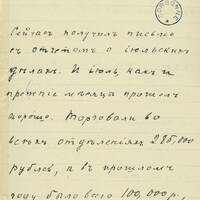 SORBONNE
Сейчас получил письмо
съ отчетомъ о іюльскихъ
дѣлахъ. И іюль, какъ и
прежніе мѣсяцы прошелъ
хорошо. Торговали во
всѣхъ отдѣленіяхъ 285,000
рублей, а въ прошломъ
году было всего 100,000 р,